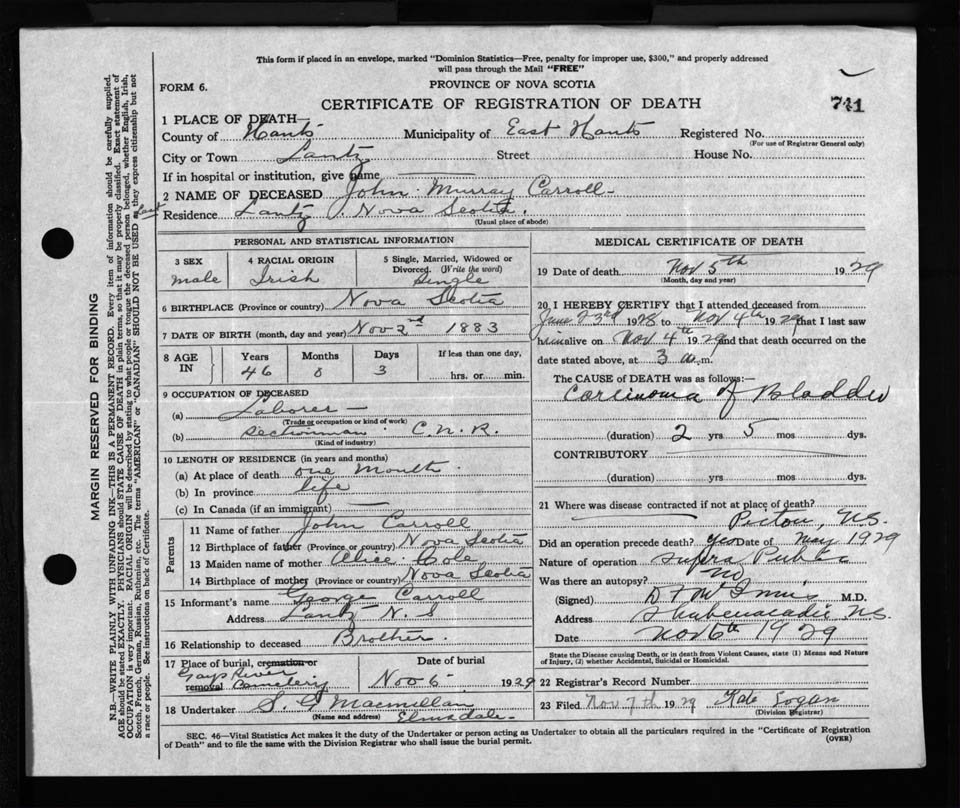 This form if placed in an envelope, marked "Dominion Statistics—Free, penalty for improper use, $300," and properly addressed
will pass through the Mail "FREE"
FORM 6.
PROVINCE OF NOVA SCOTIA
CERTIFICATE OF REGISTRATION OF DEATH
741
1 PLACE OF DEATH—
County of Hants Municipality of East Hants Registered No.
(For use of Registrar General only)
City or Town Lantz Street House No.
If in hospital or institution, give name
2 NAME OF DECEASED John Murray Carroll
Residence Lantz, Nova Scotia.
(Usual place of abode)
PERSONAL AND STATISTICAL INFORMATION
3 SEX
male
4 RACIAL ORIGIN
Irish
5 Single, Married, Widowed or
Divorced. (Write the word)
Single
6 BIRTHPLACE (Province or country) Nova Scotia
7 DATE OF BIRTH (month, day and year) Nov 2nd 1883
8 AGE
IN
Years
46
Months
0
Days
3
If less than one day,
hrs. or min.
9 OCCUPATION OF DECEASED
(a) Laborer
(Trade or occupation or kind of work)
(b) Sectionman. C.N.R.
(Kind of industry)
10 LENGTH OF RESIDENCE (in years and months)
(a) At place of death one Month.
(b) In province life
(c) In Canada (if an immigrant)
Parents
11 Name of father John Carroll
12 Birthplace of father (Province or country) Nova Scotia
13 Maiden name of mother Alice Cole
14 Birthplace of mother (Province or country) Nova Scotia
15 Informant's name George Carroll
Address Lantz N.S
16 Relationship to deceased Brother.
17 Place of burial, cremation or
removal
Gays River
Cemetery
Date of burial
Nov 6 1929
18 Undertaker S. G Macmillan
(Name and address) Elmsdale
MEDICAL CERTIFICATE OF DEATH
19 Date of death Nov 5th 1929
(Month, day and year)
20 I HEREBY CERTIFY that I attended deceased from
June 23rd 1928 to Nov 4th 1929 that I last saw
him alive on Nov 4th 1929 and that death occurred on the
date stated above, at 3 a.m.
The CAUSE OF DEATH was as follows:—
Carcinoma of Bladder
(duration) 2 yrs 5 mos dys.
CONTRIBUTORY
(duration) yrs mos dys.
21 Where was disease contracted if not at place of death?
Pictou, N.S.
Did an operation precede death? yes Date of May 1929
Nature of operation Supra Pubic
Was there an autopsy? no
(Signed) M.D.
Address Shubenacadie N.S.
Date Nov 6th 1929
State the Disease causing Death, or in death from Violent Causes, state (1) Means and Nature
of Injury, (2) whether Accidental, Suicidal or Homicidal.
22 Registrar's Record Number
23 Filed Nov 7th 1929 Kate Logan
(Division Registrar)
SEC. 46—Vital Statistics Act makes it the duty of the Undertaker or person acting as Undertaker to obtain all the particulars required in the "Certificate of Registration
of Death" and to file the same with the Division Registrar who shall issue the burial permit.
(OVER)
MARGIN RESERVED FOR BINDING
N.B—WRITE PLAINLY WITH UNFADING INK—THIS IS A PERMANENT RECORD. Every item of information should be carefully supplied.
AGE should be stated EXACTLY. PHYSICIANS should STATE CAUSE OF DEATH in plain terms, so that it may be properly classified. Exact statement of
OCCUPATION is very important. RACIAL ORIGIN will be described by stating to what people or tongue the deceased person belonged, whether English, Irish,
Scotch, French, German, Russian, Ruthenian, etc. The terms "AMERICAN" or "CANADIAN" SHOULD NOT BE USED as they express citizenship but not
a race or people. See instructions on back of Certificate.